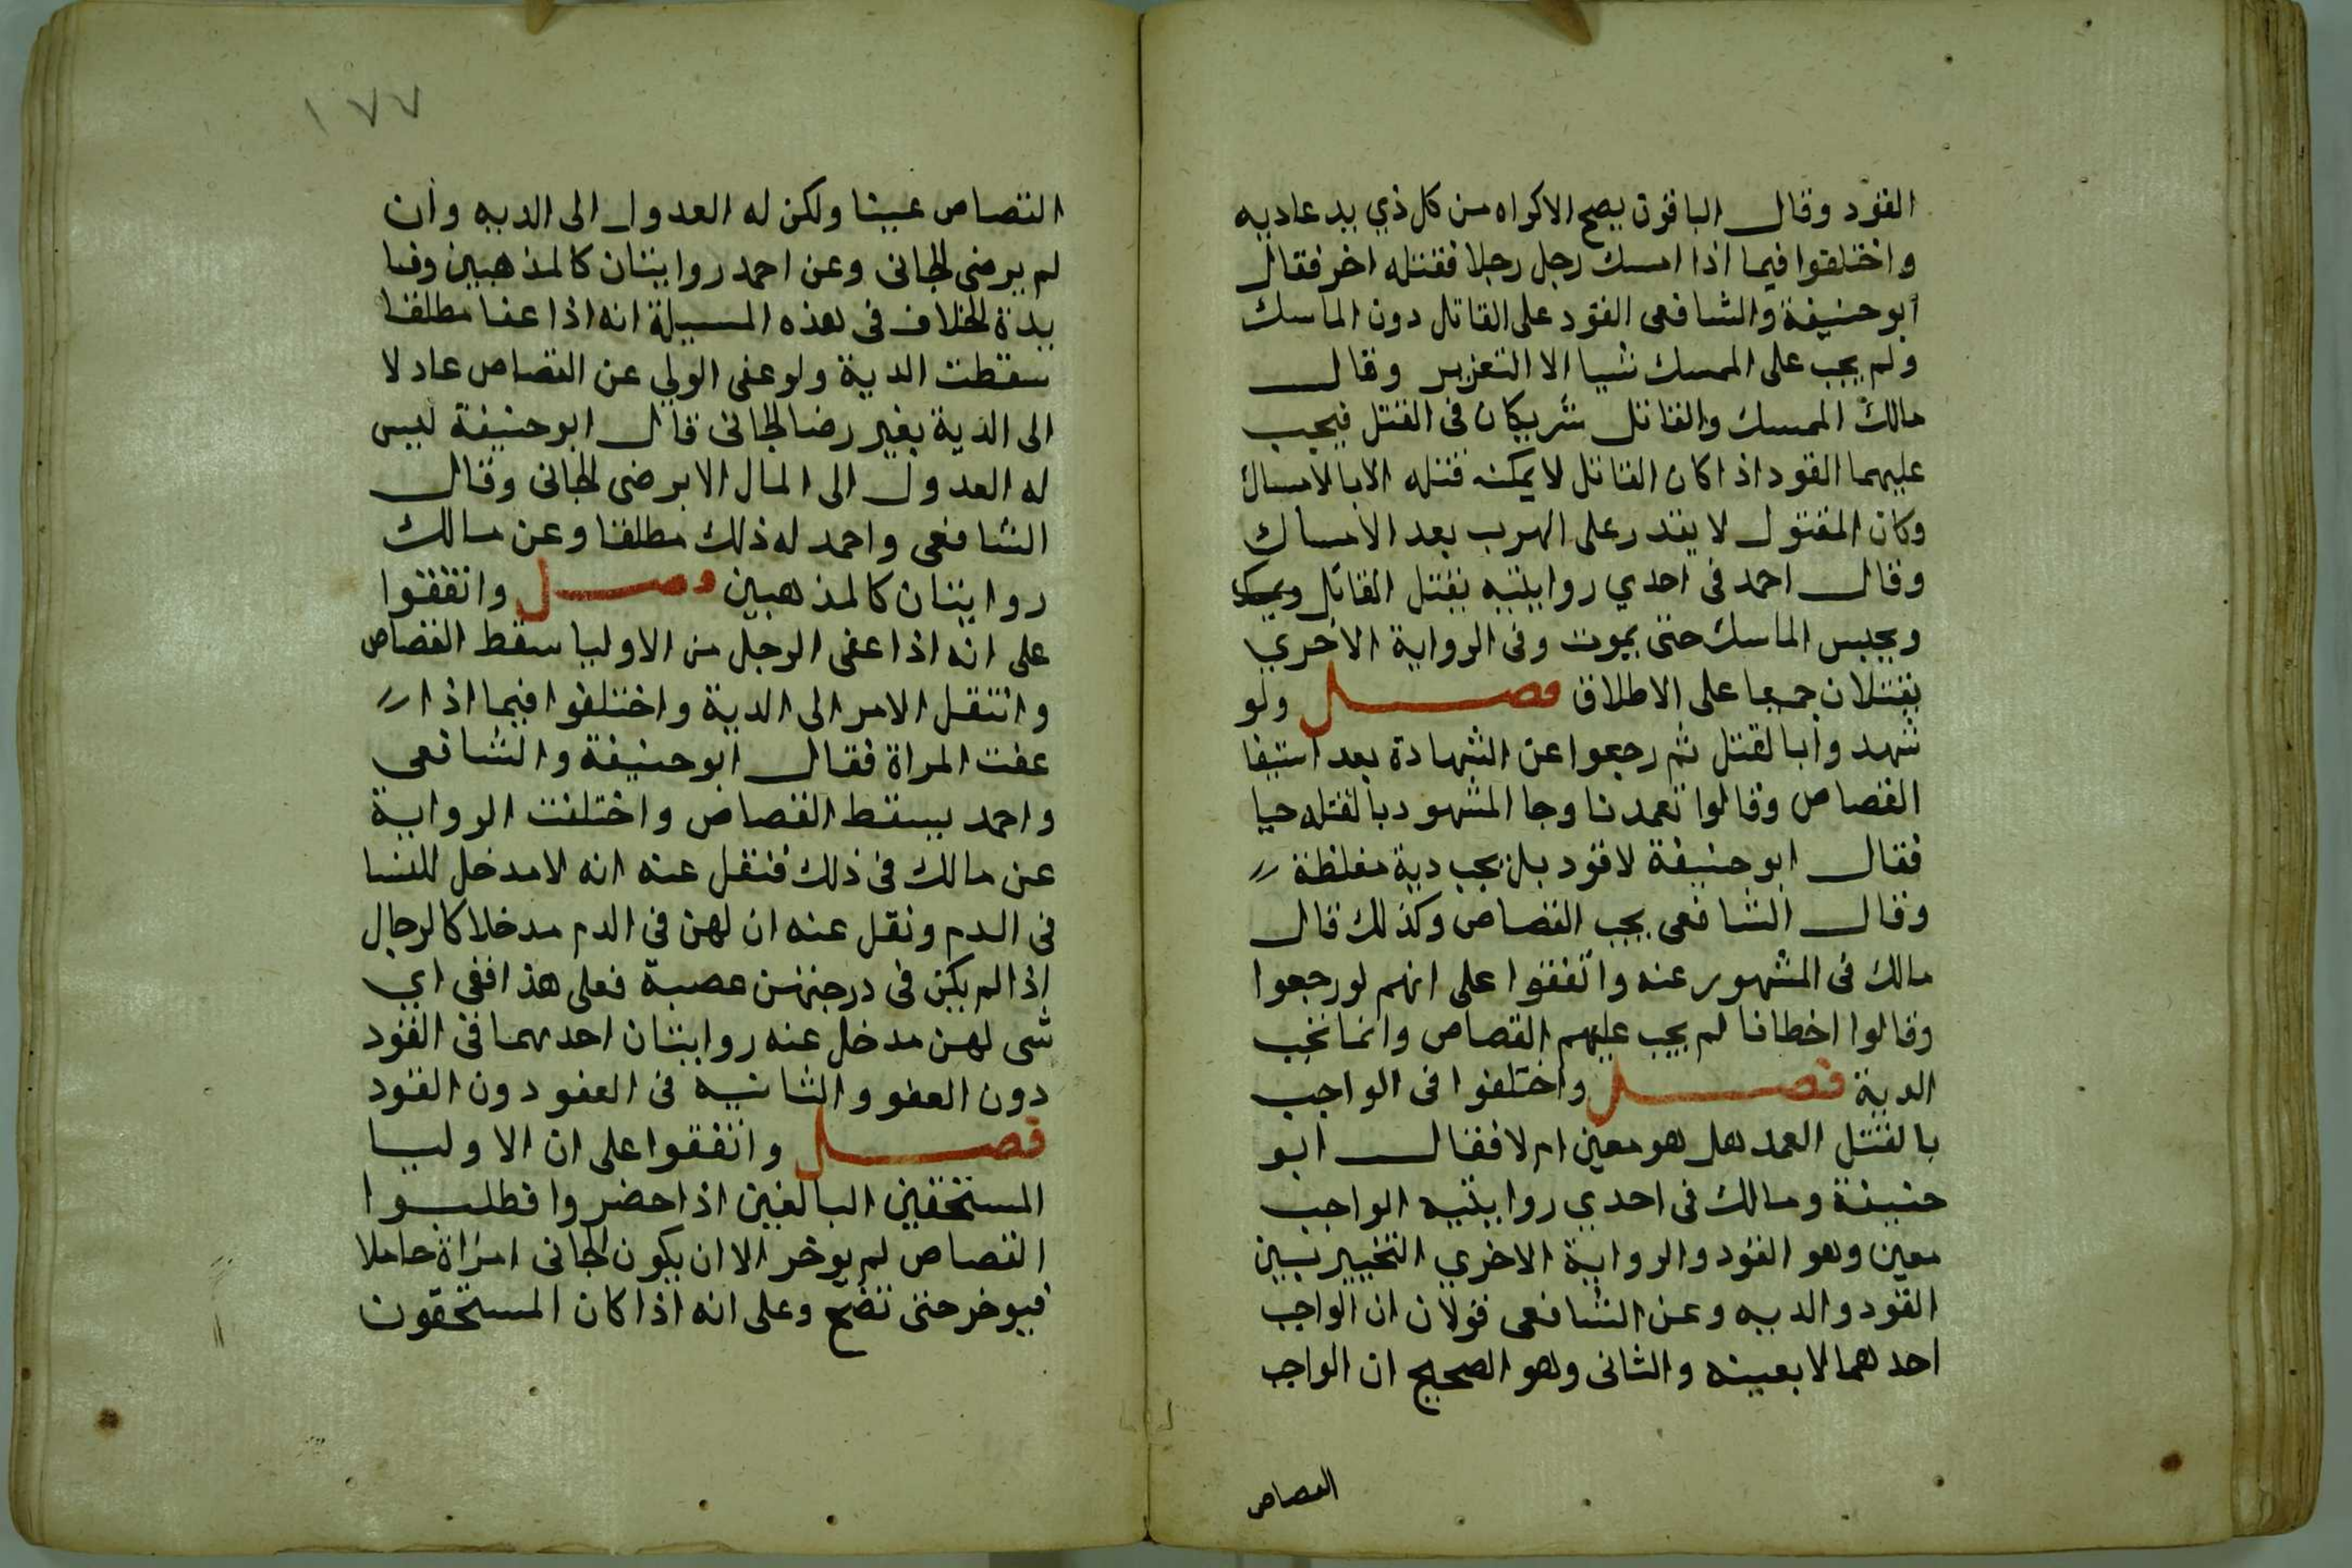 القود وقال الباقون يصح الاكراه من كل ذي يد عاديه
واختلفوا فيما اذا امسك رجل رجلا فقتله اخر فقال
ابو حنيفة والشافعى القود على القاتل دون الماسك
ولم يجب على الممسك شيا الا التعزير وقال
مالك الممسك والقاتل شريكان فى القتل فيجب
عليهما القود اذا كان القاتل لا يمكنه قتله الا بالامساك
وكان المقتول لا يقدر على الهرب بعد الامساك
وقال احمد فى احدي روايتيه يقتل القاتل
ويحبس الماسك حتى يموت وفى الرواية الاخري
يقتلان جميعا على الاطلاق فصل ولو
شهدوا بالقتل ثم رجعوا عن الشهادة بعد استيفا
القصاص وقالوا تعمدنا وجا المشهود بالقتله حيا
فقال ابو حنيفة لا قود بل يجب دية مغلظة
وقال الشافعى يجب القصاص وكذلك قال
مالك فى المشهور عنه واتفقوا على انهم لو رجعوا
وقالوا اخطانا لم يجب عليهم القصاص وانما تجب
الدية فصل واختلفوا فى الواجب
بالقتل العمد هل هو معين ام لا فقال ابو
حنيفة ومالك فى احدي روايتيه الواجب
معين وهو القود والرواية الاخري التخيير بين
القود والديه وعن الشافعى قولان ان الواجب
احدهما لا بعينه والثانى وهو الصحيح ان الواجب
القصاص
١٧٧
القصاص عينا ولكن له العدول الى الديه وان
لم يرضى الجانى وعن احمد روايتان كالمذهبين وفا
يدة الخلاف فى هذه المسيلة انه اذا عفا مطلقا
سقطت الدية ولو عفى الولي عن القصاص عادلا
الى الدية بغير رضا الجانى قال ابو حنيفة ليس
له العدول الى المال الا برضى الجانى وقال
الشافعى واحمد له ذلك مطلقا وعن مالك
روايتان كالمذهبين فصل واتفقوا
على انه اذا عفى الرجل من الاوليا سقط القصاص
وانتقل الامر الى الدية واختلفوا فيما اذا
عفت المراة فقال ابو حنيفة والشافعي
واحمد يسقط القصاص واختلفت الرواية
عن مالك فى ذلك فنقل عنه انه لا مدخل للنسا
فى الدم ونقل عنه ان لهن فى الدم مدخلا كالرجال
اذا لم يكن فى درجتهن عصبة فعلى هذا ففى اي
شى لهن مدخل عنه روايتان احدهما فى القود
دون العفو والثانيه فى العفو دون القود
فصل واتفقوا على ان الاوليا
المستحقين البالغين اذا حضروا فطلبوا
القصاص لم يوخر الا ان يكون الجانى امراة حاملا
فيوخر حتى تضع وعلى انه اذا كان المستحقون